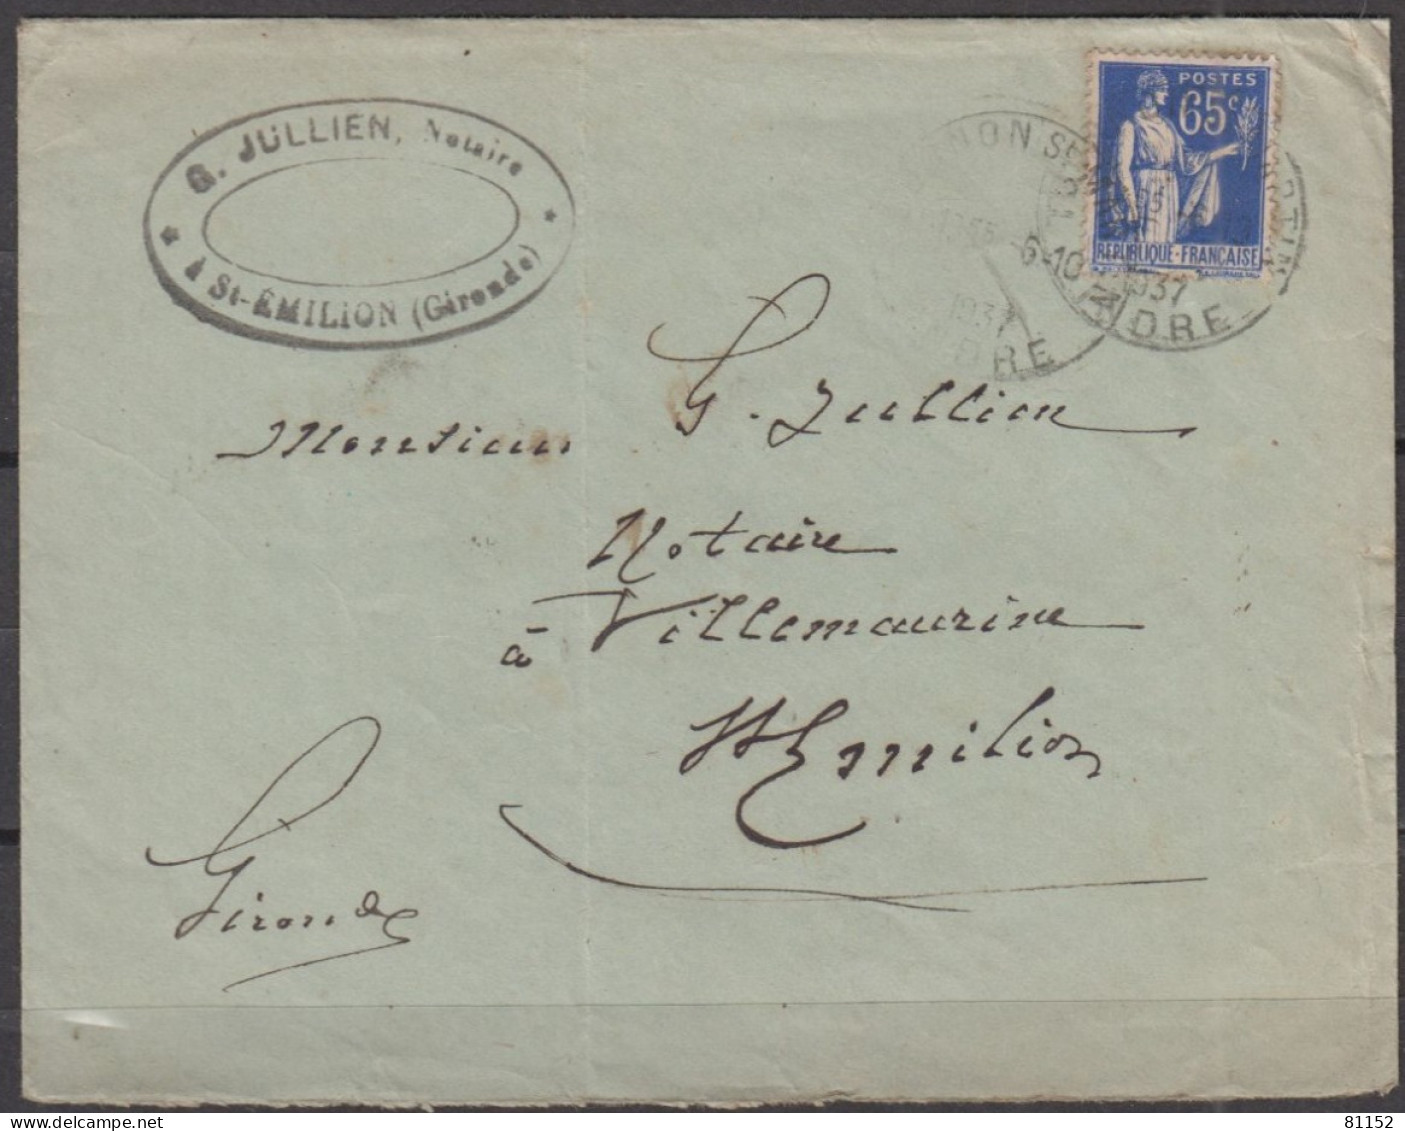 G. JULLIEN, Notaire
à St-ÉMILION (Gironde)
POSTES
65c
RÉPUBLIQUE-FRANÇAISE
TOURNON ST MARTIN
6-10
1937
INDRE
1937
Monsieur G. Jullien
Notaire
à Villemaurine
St Emilion
Gironde
www.delcampe.net
81152